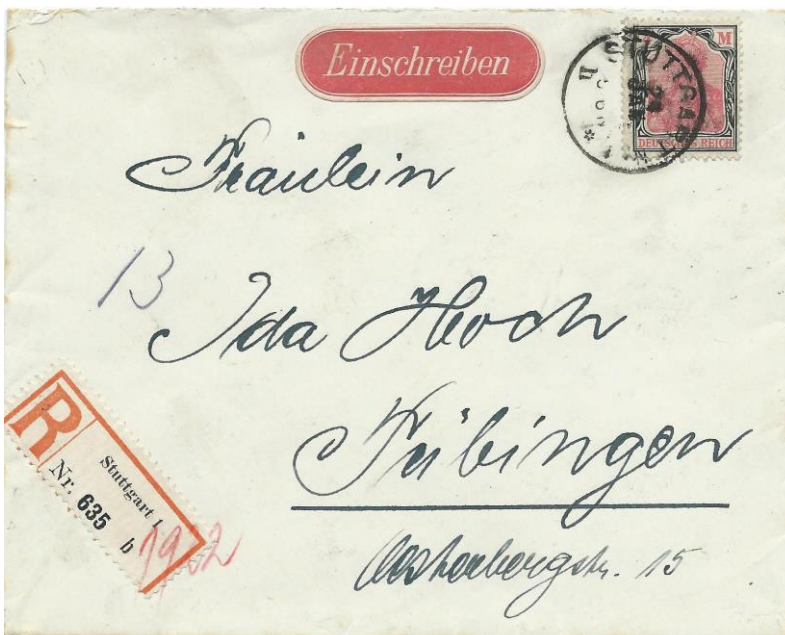 Einschreiben
M
STUTTGART
DEUTSCHES REICH
Fräulein
13
Ida Hoch
Tübingen
Österbergstr. 15
R
Stuttgart 1
Nr. 635 b